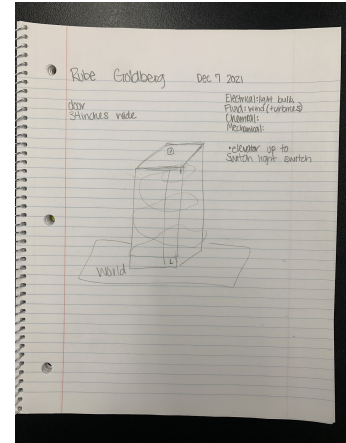 Rube Goldberg Dec 7 2021
door
34inches wide
Electrical: light bulb
Fluid: wind (turbines)
Chemical:
Mechanical:
• elevator up to
switch light switch
World